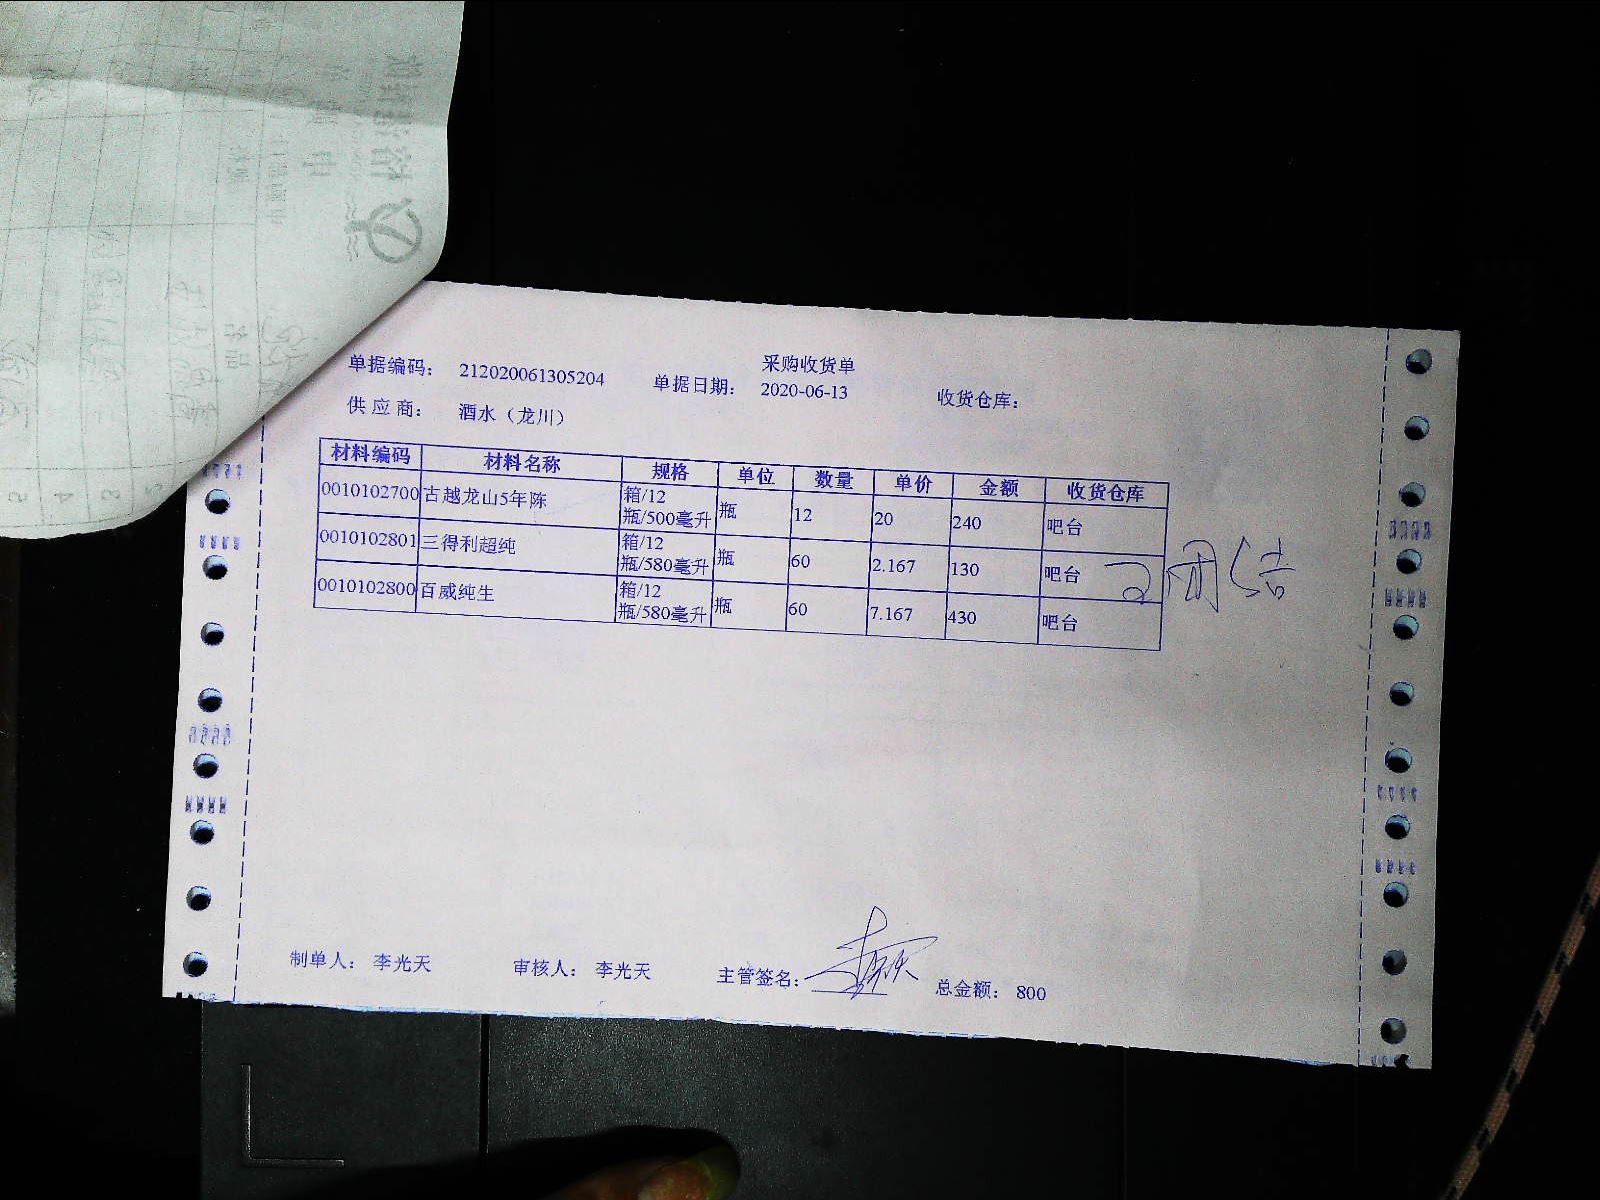 采购收货单
单据编码： 212020061305204 单据日期： 2020-06-13 收货仓库：
供应商： 酒水（龙川）
材料编码 材料名称 规格 单位 数量 单价 金额 收货仓库
0010102700 古越龙山5年陈 箱/12瓶/500毫升 瓶 12 20 240 吧台
0010102801 三得利超纯 箱/12瓶/580毫升 瓶 60 2.167 130 吧台
0010102800 百威纯生 箱/12瓶/580毫升 瓶 60 7.167 430 吧台
制单人： 李光天 审核人： 李光天 主管签名： 总金额： 800